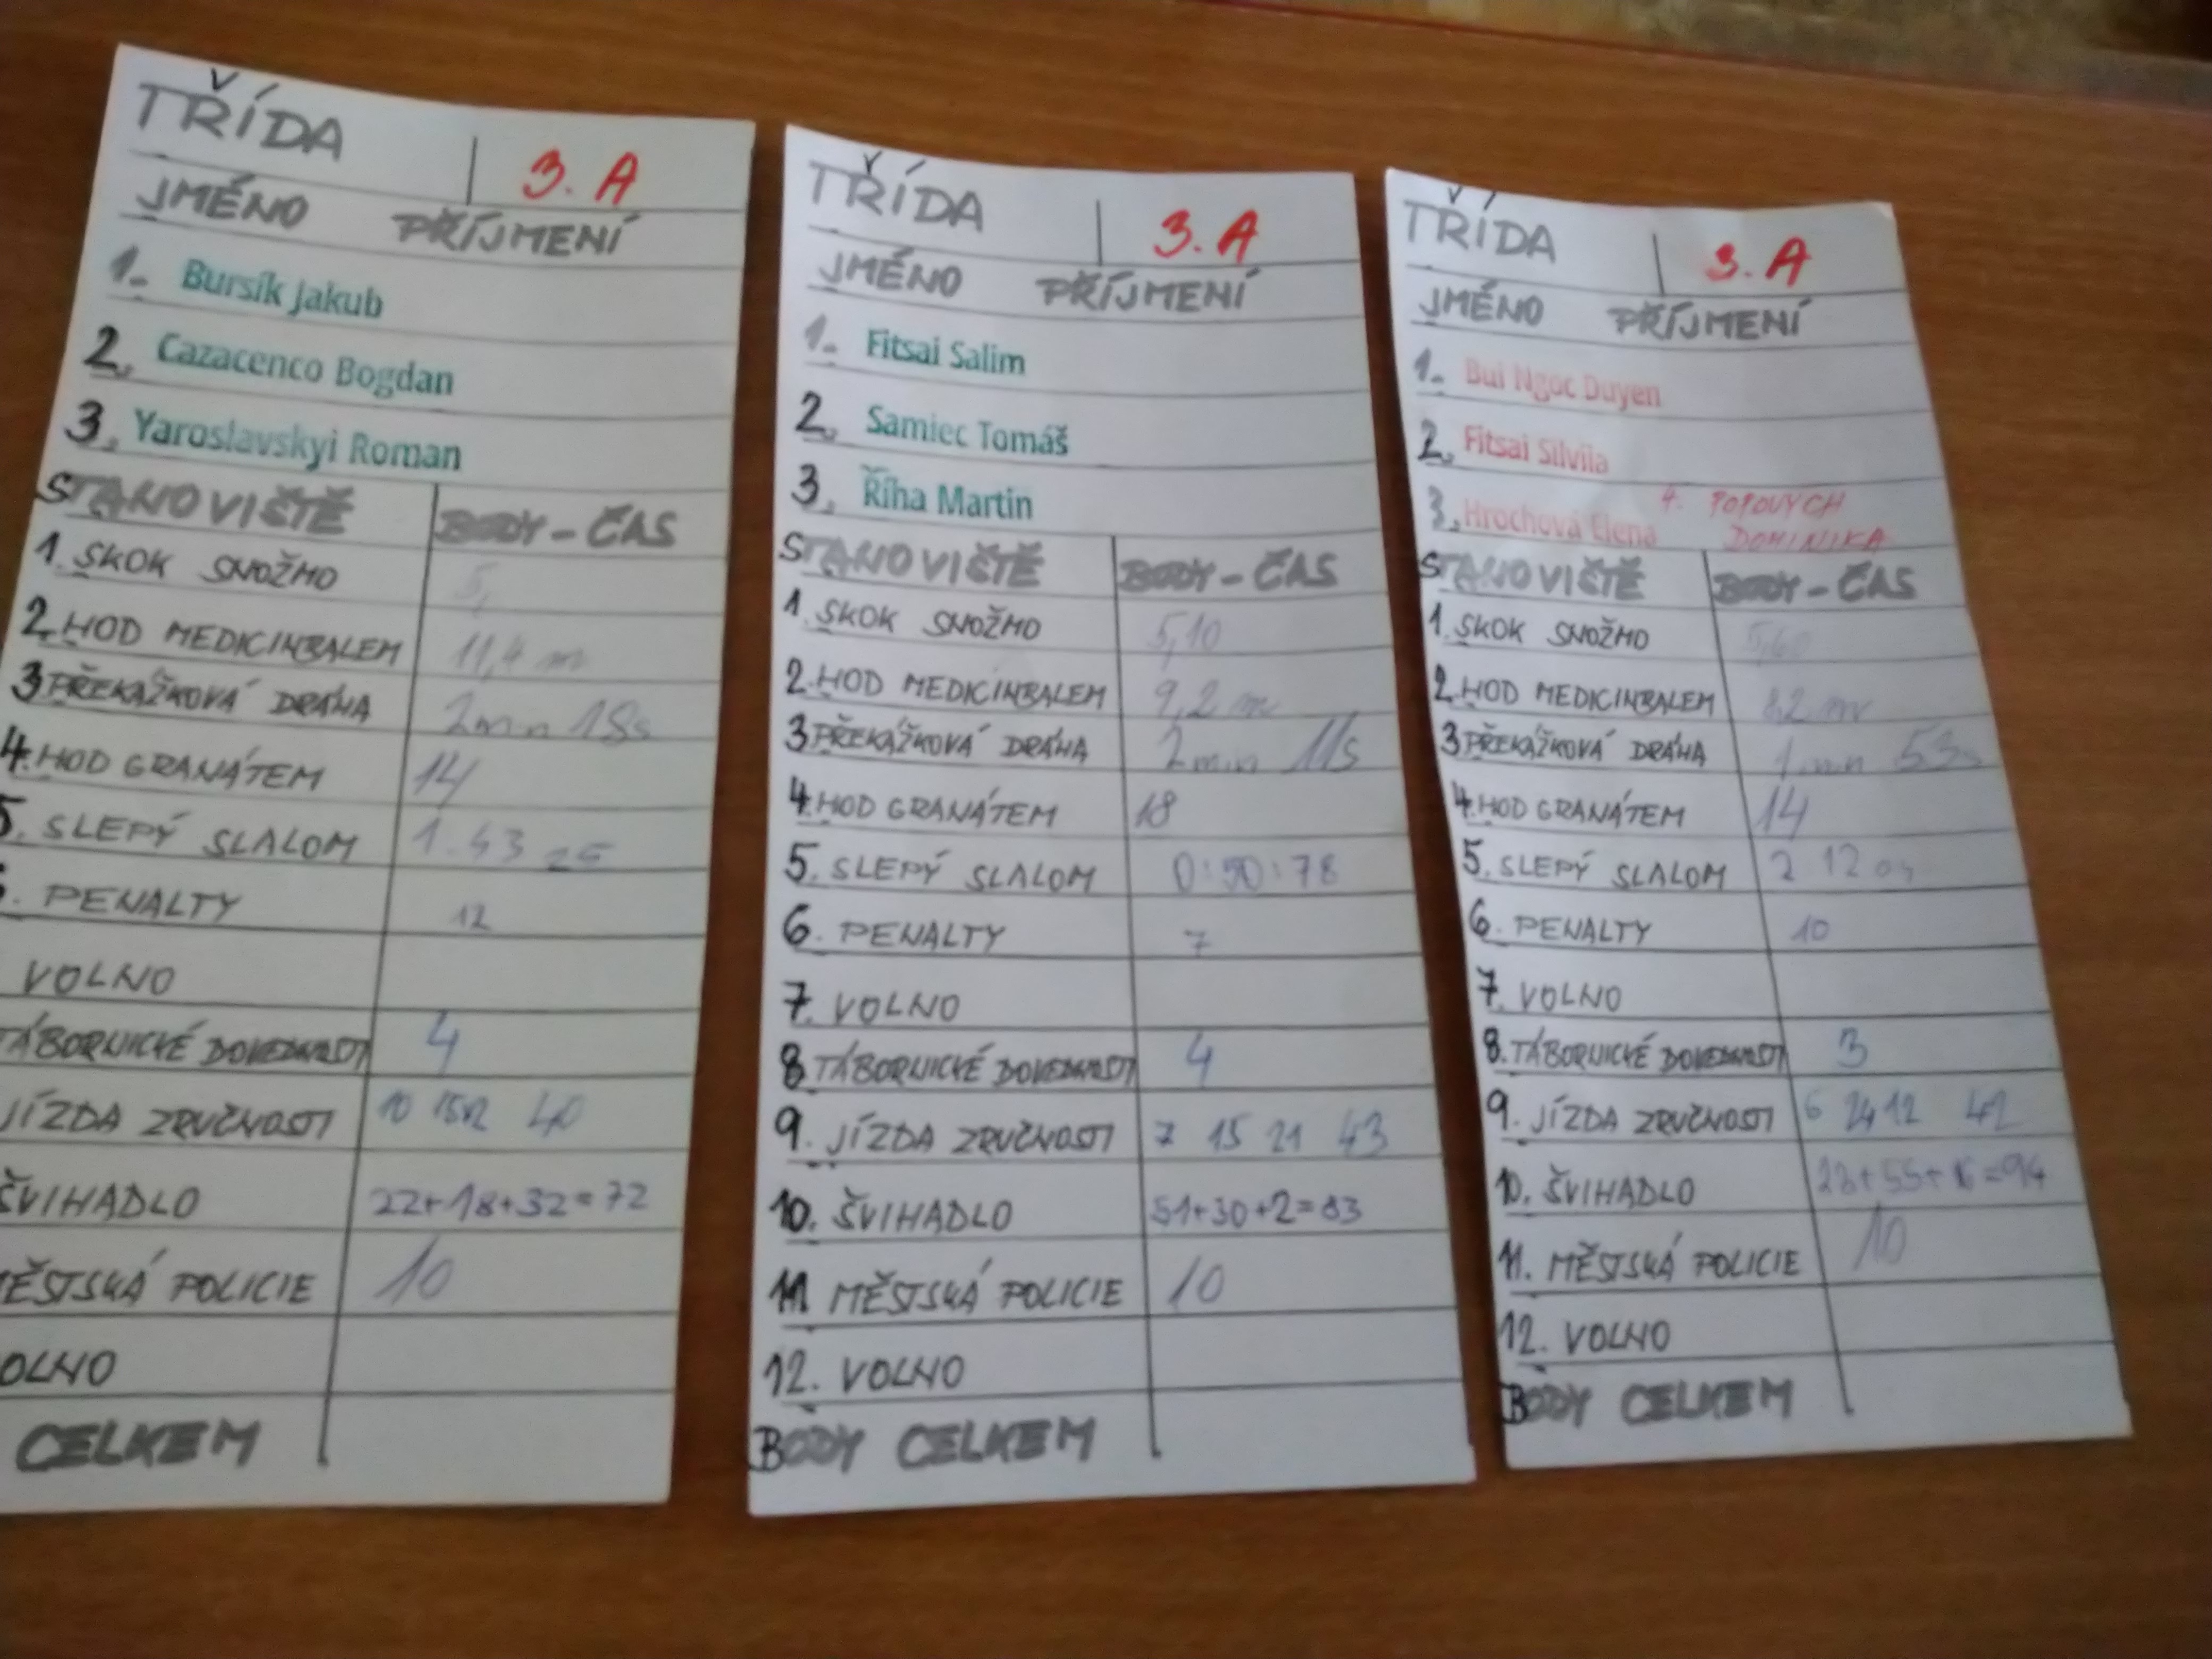 TŘÍDA 3. A
JMÉNO PŘÍJMENÍ
1. Bursík Jakub
2. Cazacenco Bogdan
3. Yaroslavskyi Roman
STANOVIŠTĚ BODY - ČAS
1. SKOK SNOŽMO 5,
2. HOD MEDICINBALEM 11,4 m
3 PŘEKÁŽKOVÁ DRÁHA 2min 18s
4. HOD GRANÁTEM 14
5. SLEPÝ SLALOM 1.43 25
. PENALTY 12
VOLNO
TÁBORNICKÉ DOVEDNOSTI 4
JÍZDA ZRUČNOSTI 10 15 12 40
ŠVIHADLO 22+18+32=72
MĚSTSKÁ POLICIE 10
OLNO
CELKEM
TŘÍDA 3. A
JMÉNO PŘÍJMENÍ
1. Fitsai Salim
2. Samiec Tomáš
3. Říha Martin
STANOVIŠTĚ BODY - ČAS
1. SKOK SNOŽMO 5,10
2. HOD MEDICINBALEM 9,2 m
3 PŘEKÁŽKOVÁ DRÁHA 2min 11s
4. HOD GRANÁTEM 18
5. SLEPÝ SLALOM 0:50:78
6. PENALTY 7
7. VOLNO
8 TÁBORNICKÉ DOVEDNOSTI 4
9. JÍZDA ZRUČNOSTI 7 15 21 43
10. ŠVIHADLO 51+30+2=83
11. MĚSTSKÁ POLICIE 10
12. VOLNO
BODY CELKEM
TŘÍDA 3. A
JMÉNO PŘÍJMENÍ
1. Bui Ngoc Duyen
2. Fitsai Silviia
3. Hrochová Elena 4. POPOVYCH
DOMINIKA
STANOVIŠTĚ BODY - ČAS
1. SKOK SNOŽMO 5,60
2. HOD MEDICINBALEM 8,2 m
3 PŘEKÁŽKOVÁ DRÁHA 1 min 53s
4. HOD GRANÁTEM 14
5. SLEPÝ SLALOM 2 12
6. PENALTY 10
7. VOLNO
8. TÁBORNICKÉ DOVEDNOSTI 3
9. JÍZDA ZRUČNOSTI 6 24 12 42
10. ŠVIHADLO 23+55+16=94
11. MĚSTSKÁ POLICIE 10
12. VOLNO
BODY CELKEM